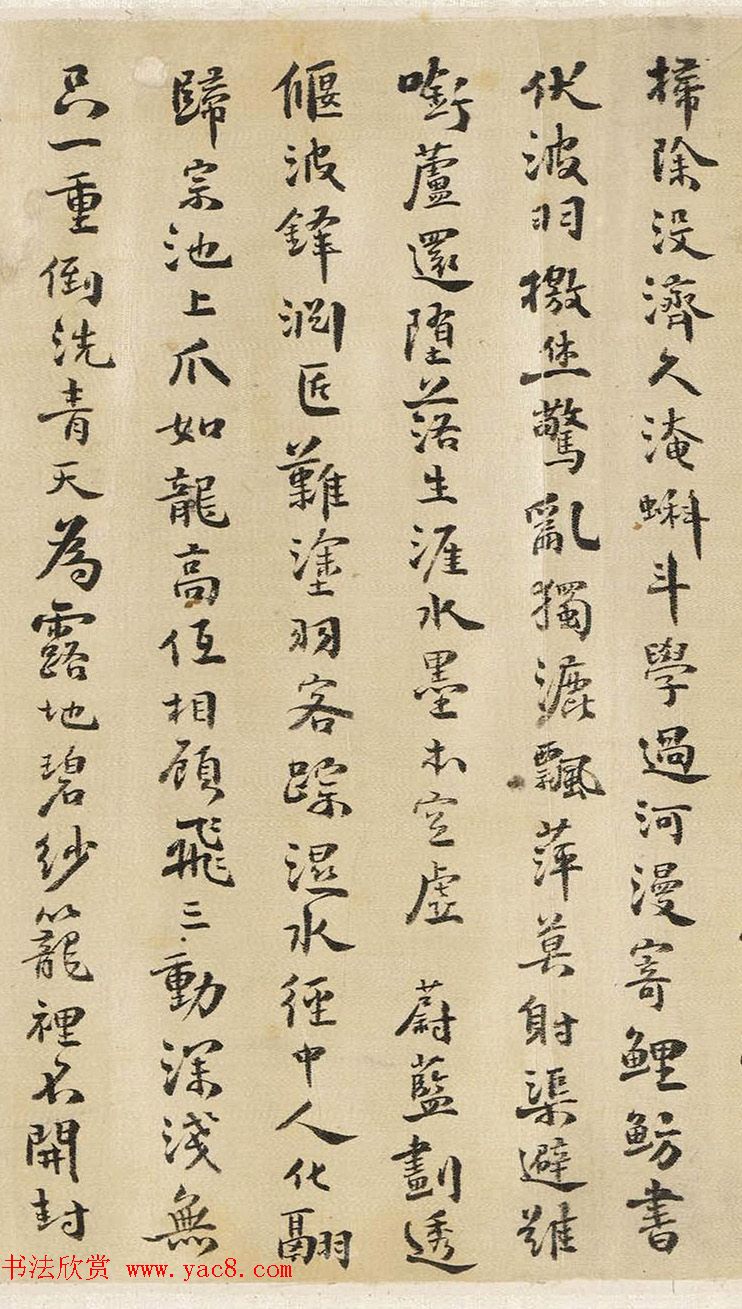 掃除没濟久淹蝌斗學過河漫寄鯉魴書
伏波羽檄並驚亂獨漉飄萍莫射渠避雄
銜蘆還墮落生涯水墨本空虛 蔚藍劃透
偃波鋒渕匹難塗羽客蹤濕水徑中人化翮
歸宗池上爪如龍高低相顧飛三動深淺無
只一重倒洗青天為露地碧紗籠裡不開封
书法欣赏 www.yac8.com